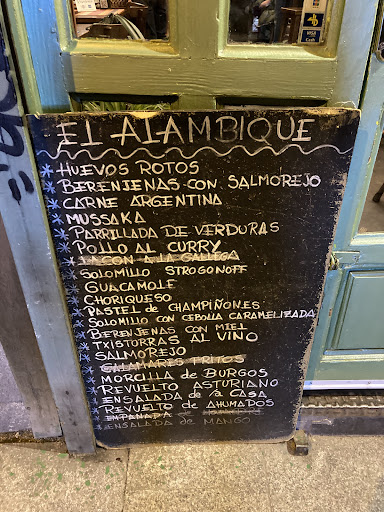 EL ALAMBIQUE
* HUEVOS ROTOS
* BERENJENAS CON SALMOREJO
* CARNE ARGENTINA
* MUSSAKA
* PARRILLADA DE VERDURAS
* POLLO AL CURRY
* LACON A LA GALLEGA
* SOLOMILLO STROGONOFF
* GUACAMOLE
* CHORIQUESO
* PASTEL de CHAMPIÑONES
* SOLOMILLO CON CEBOLLA CARAMELIZADA
* BERENJENAS CON MIEL
* TXISTORRAS AL VINO
* SALMOREJO
* CALAMARES FRITOS
* MORCILLA de BURGOS
* REVUELTO ASTURIANO
* ENSALADA de la CASA
* REVUELTO de AHUMADOS
* EMPANADA de
* ENSALADA de MANGO